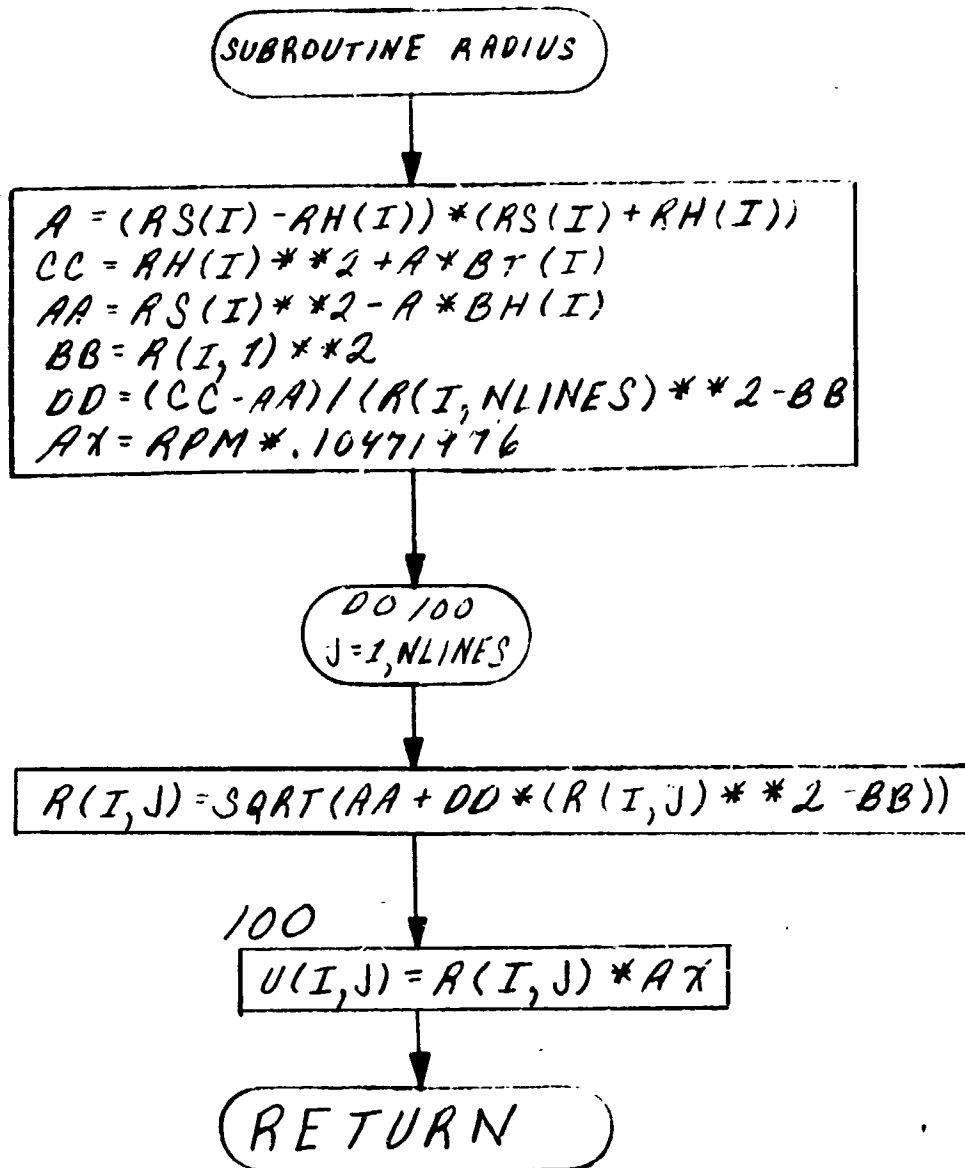 SUBROUTINE RADIUS
A = (RS(I) - RH(I)) * (RS(I) + RH(I))
CC = RH(I) * * 2 + A * BT(I)
AA = RS(I) * * 2 - A * BH(I)
BB = R(I, 1) * * 2
DD = (CC - AA) / (R(I, NLINES) * * 2 - BB
AX = RPM * .10471976
DO 100
J = 1, NLINES
R(I, J) = SQRT(AA + DD * (R(I, J) * * 2 - BB))
100
U(I, J) = R(I, J) * AX
RETURN